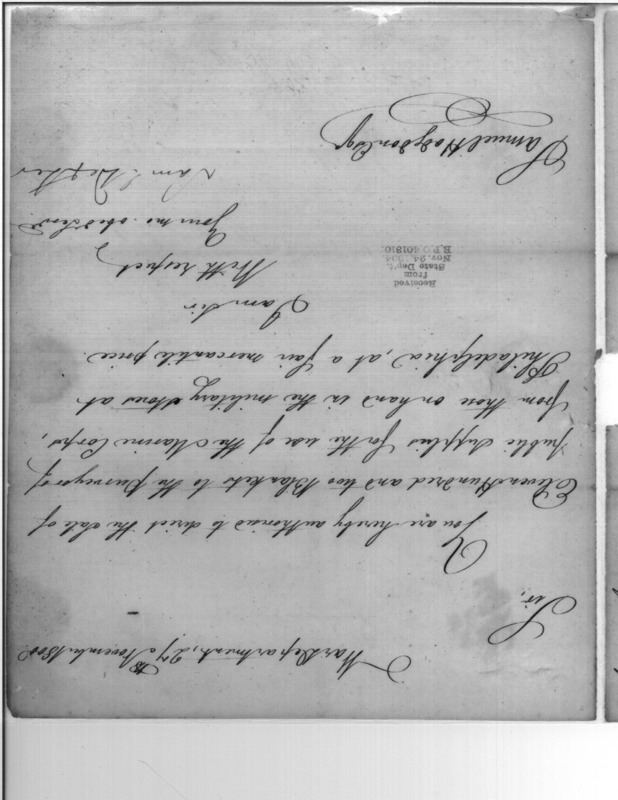 War Department, 27th November 1800
Sir,
You are hereby authorised to direct the sale of
Eleven Hundred and two Blankets to the Purveyor of
public supplies for the use of the Marine Corps,
from those on hand in the military stores at
Philadelphia, at a fair mercantile price.
I am Sir
With respect
Your mo. obed Servt
Sam. Dexter
Samuel Hodgdon Esqr
Received
from
State Dep't.
Nov. 24, 1934
E.P.O. 401810